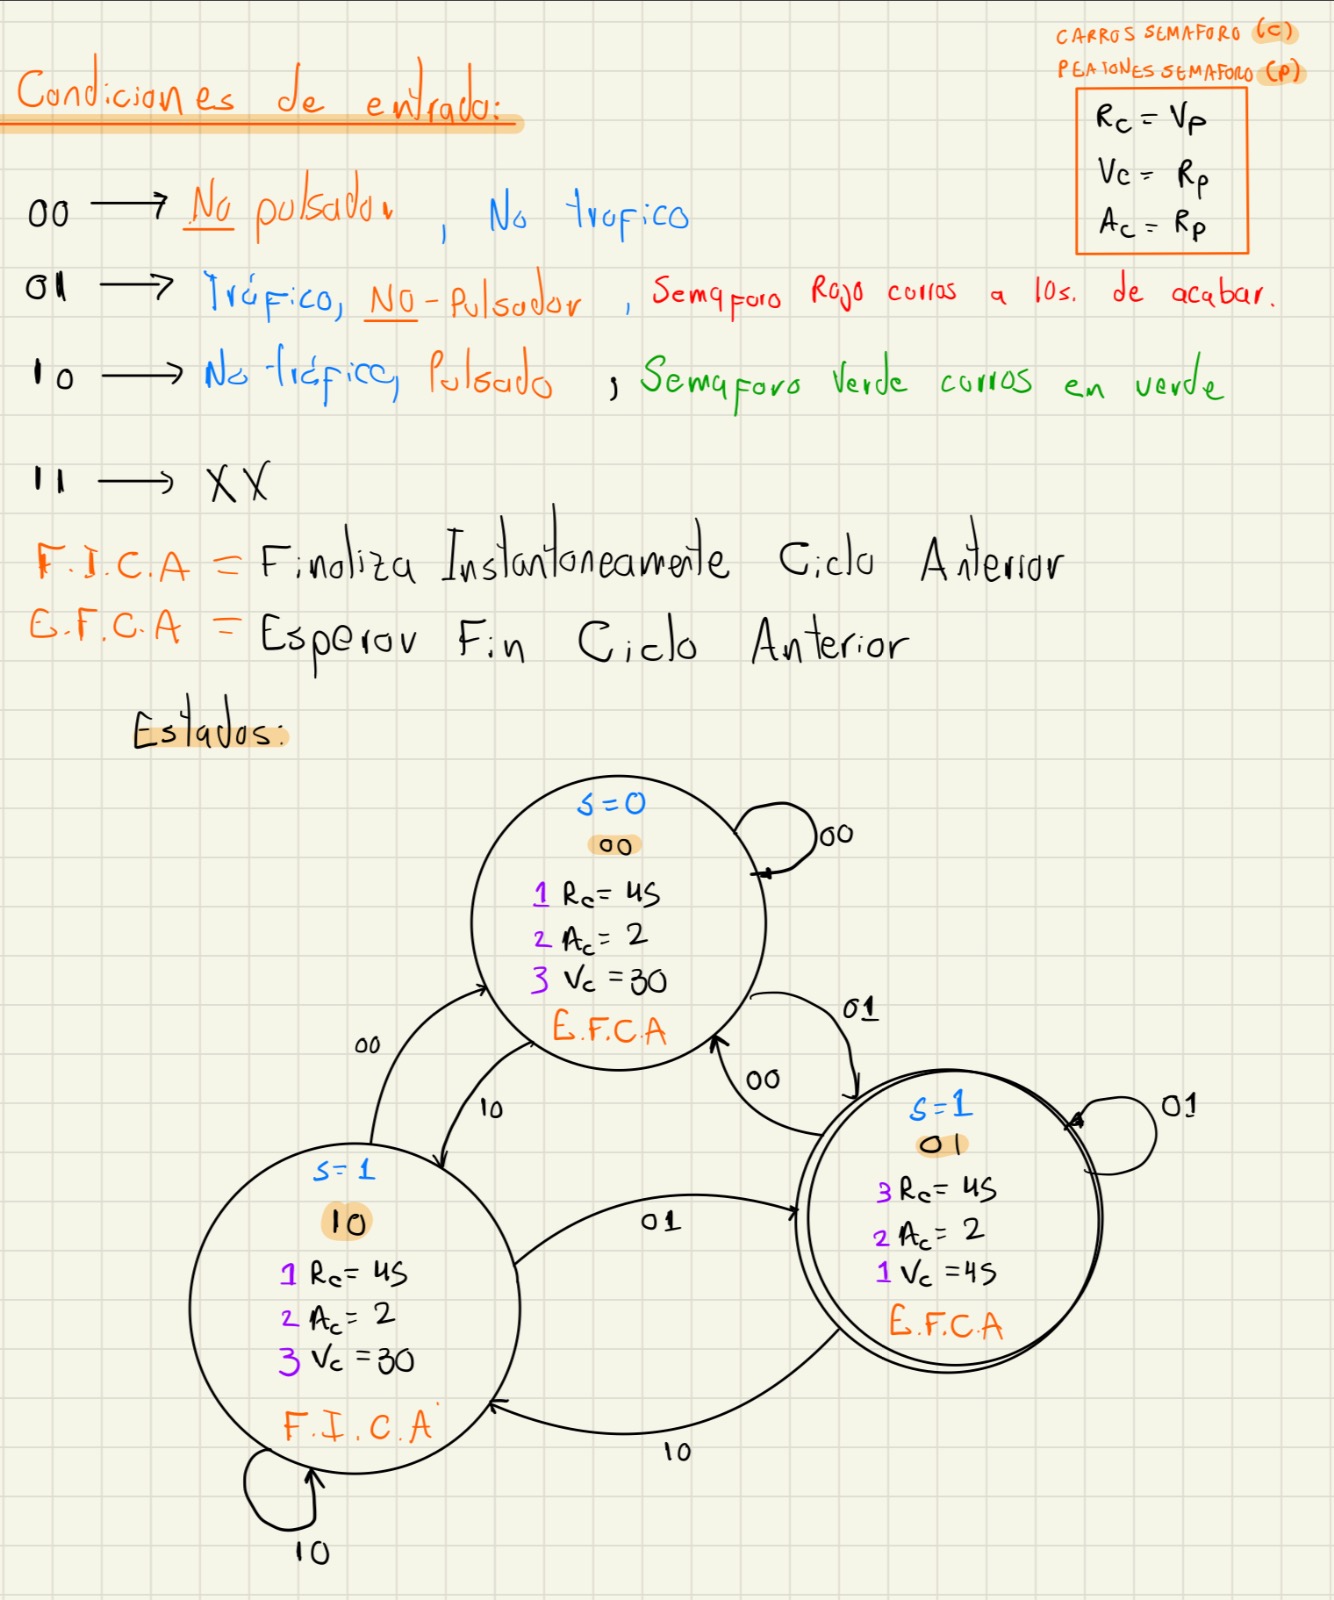 CARROS SEMAFORO (C)
PEATONES SEMAFORO (P)
Condiciones de entrada:
Rc = Vp
Vc = Rp
Ac = Rp
00 → No pulsador, No trafico
01 → Tráfico, NO-Pulsador, Semaforo Rojo carros a 10s. de acabar.
10 → No tráfico, Pulsado, Semaforo Verde carros en verde
11 → XX
F.I.C.A = Finaliza Instantaneamente Ciclo Anterior
E.F.C.A = Esperar Fin Ciclo Anterior
Estados:
S=0
00
1 Rc = 45
2 Ac = 2
3 Vc = 30
E.F.C.A
00
01
00
00
10
S=1
01
3 Rc = 45
2 Ac = 2
1 Vc = 45
E.F.C.A
01
S=1
10
1 Rc = 45
2 Ac = 2
3 Vc = 30
F.I.C.A
01
10
10